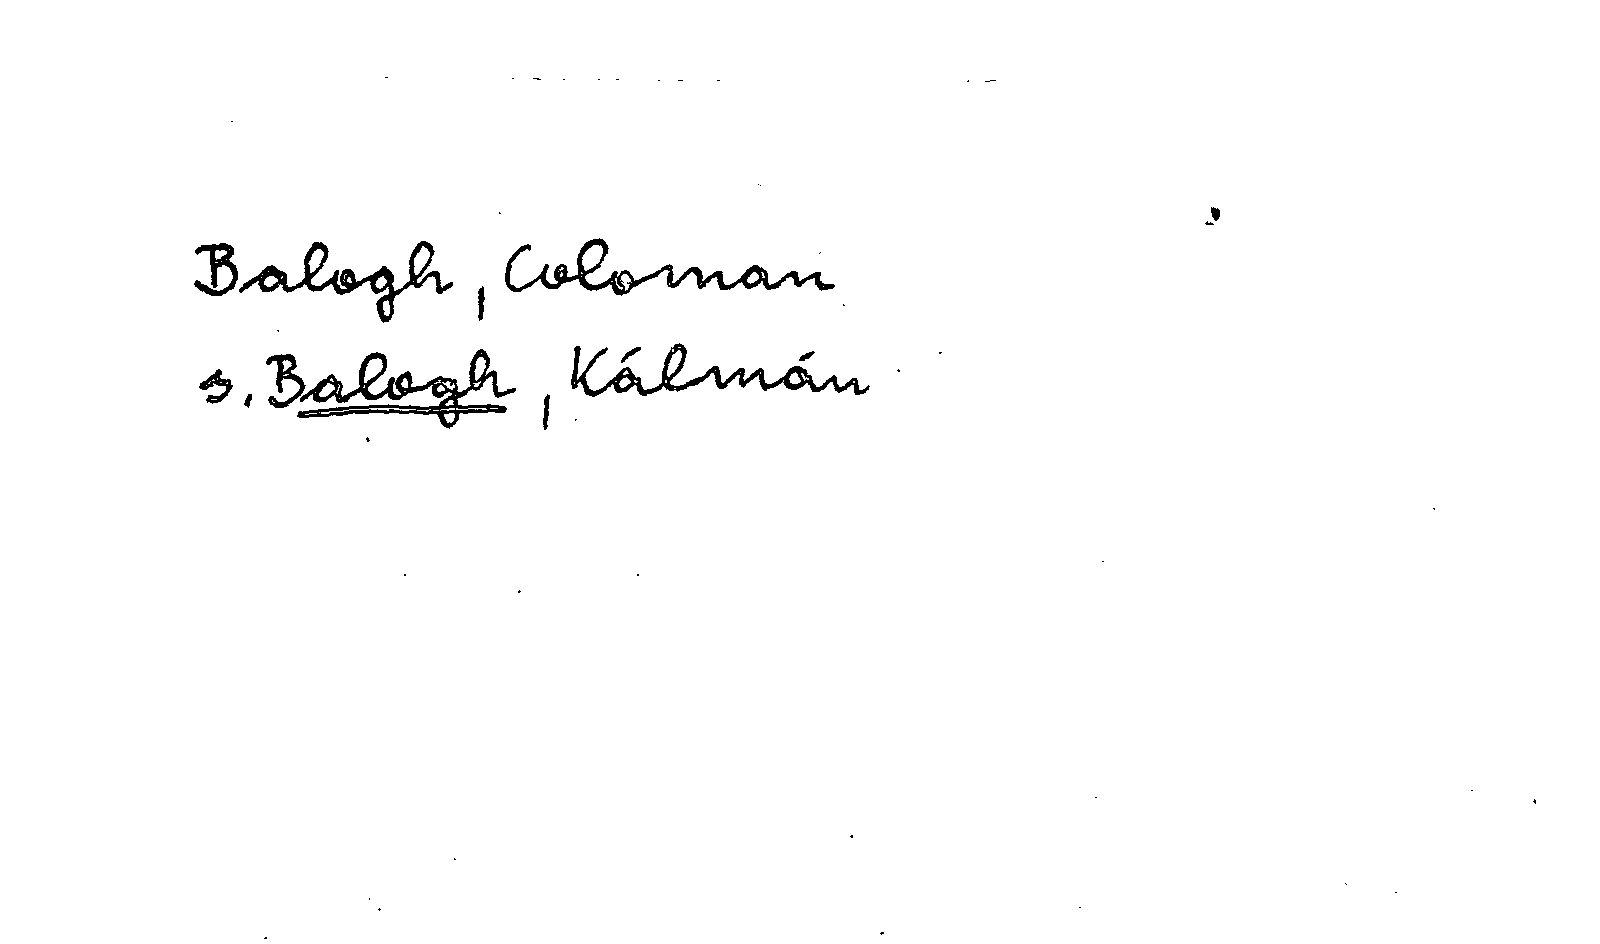 Balogh, Coloman
s. Balogh, Kálmán